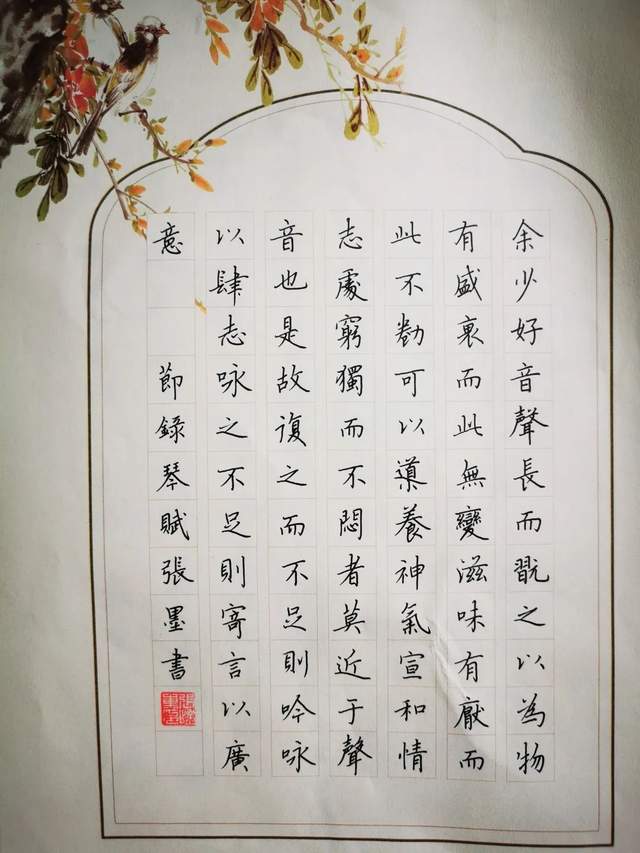 余少好音聲長而翫之以為物
有盛衰而此無變滋味有厭而
此不勌可以導養神氣宣和情
志處窮獨而不悶者莫近于聲
音也是故復之而不足則吟咏
以肆志咏之不足則寄言以廣
意 節錄琴賦張墨書